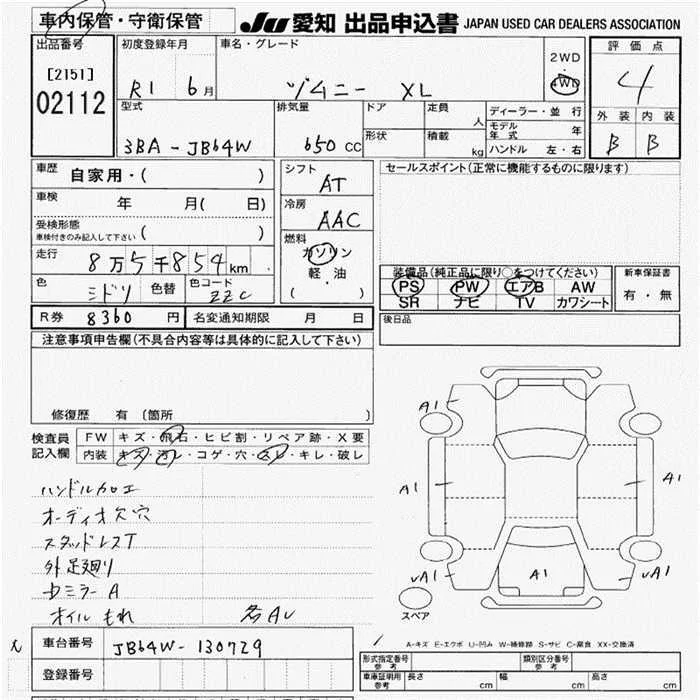 車内保管・守衛保管 JU 愛知 出品申込書 JAPAN USED CAR DEALERS ASSOCIATION
出品番号 初度登録年月 車名・グレード 2WD 評価点
[2151] ・
02112 R1 6月 ジムニー XL 4WD 4
型式 排気量 ドア 定員 人 ディーラー・並行 外装 内装
3BA-JB64W 650 CC 形状 積載 kg モデル年式 年 B B
ハンドル 左・右
車歴 自家用・( ) シフト AT セールスポイント(正常に機能するものに限ります)
車検 年 月( 日) 冷房 AAC
受検形態 車検付きのみ記入して下さい ( ) 燃料
走行 8万5千854km ガソリン
軽・油
( )
色 ミドリ 色替 色コード ZZC
装備品(純正品に限り○をつけてください) 新車保証書
PS PW エアB AW 有・無
SR ナビ TV カワシート
R券 8360 円 名変通知期限 月 日 後日品
注意事項申告欄(不具合内容等は具体的に記入して下さい)
修復歴 有 〔箇所 〕
検査員 FW キズ・飛石・ヒビ割・リペア跡・X要
記入欄 内装 キズ・汚レ・コゲ・穴・スレ・キレ・破レ
ハンドルカロエ
オーディオ欠穴
スタッドレスT
外足廻り
ミラーA
オイルもれ 各AU
A1
A1 A1
UA1 A1 UA1
スペア
A-キズ E-エクボ U-凹み W-補修跡 S-サビ C-腐食 XX-交換済
車台番号 JB64W-130729
登録番号
形式指定番号 参考 類別区分番号 参考
車庫証明用 参考 長さ cm 幅 cm 高さ cm